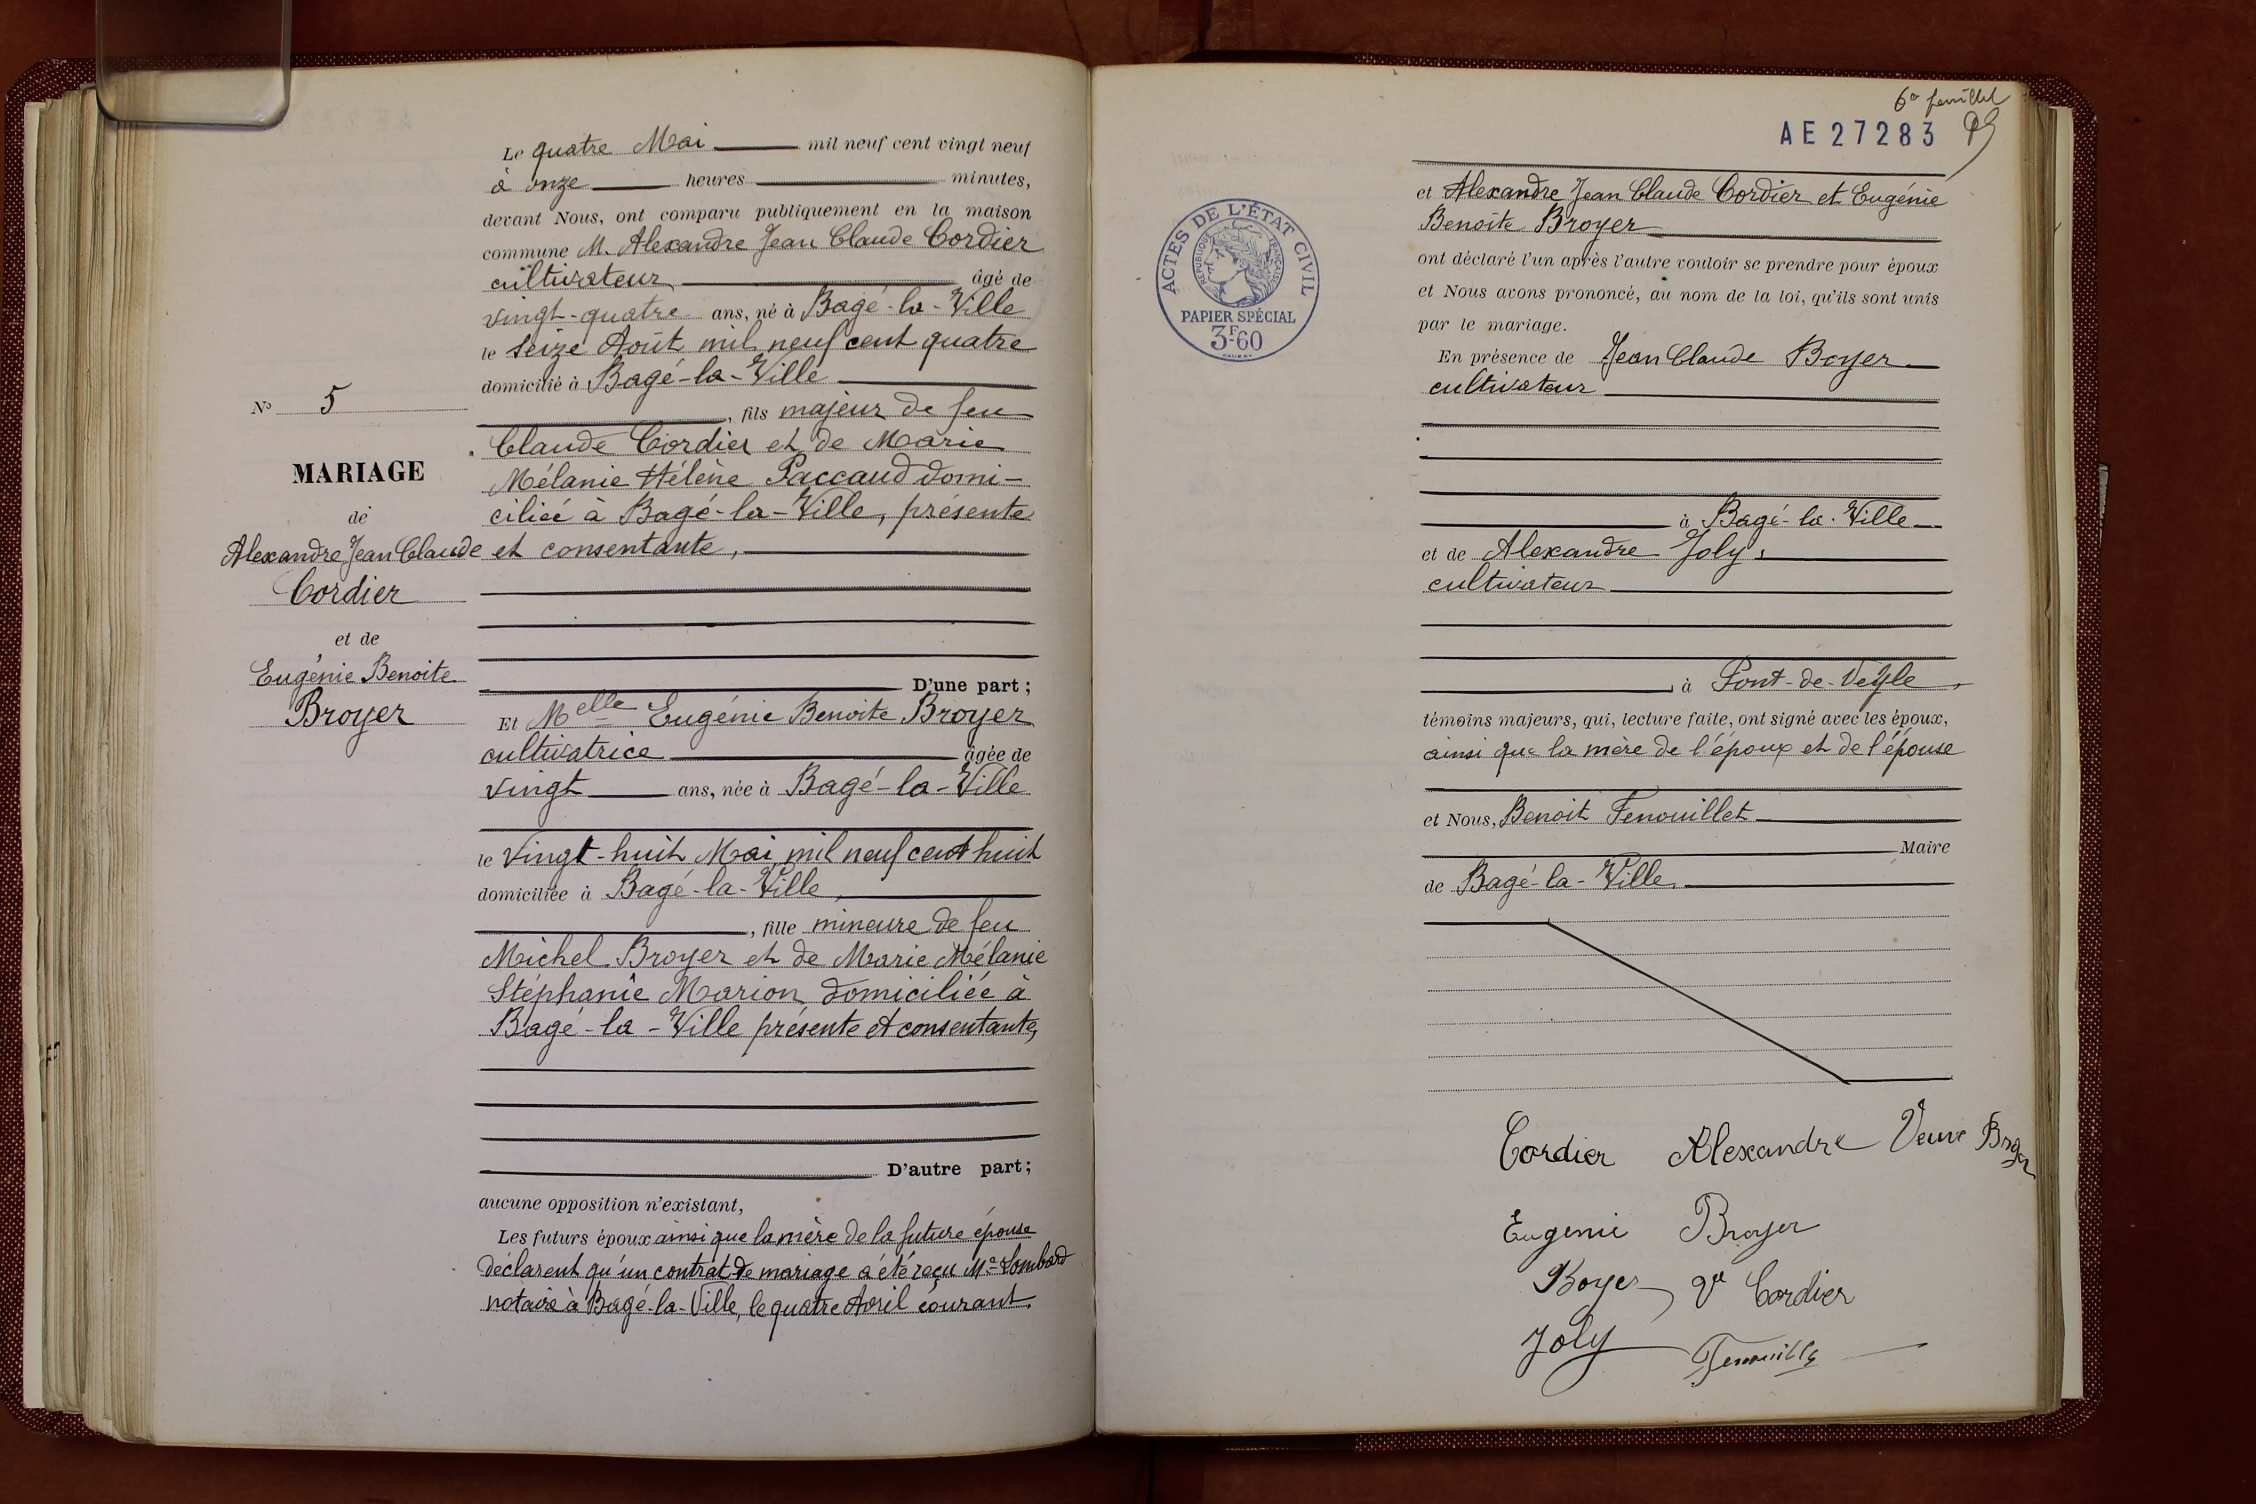 Le quatre Mai mil neuf cent vingt neuf
à onze heures minutes,
devant Nous, ont comparu publiquement en la maison
commune M. Alexandre Jean Claude Cordier
cultivateur âgé de
vingt-quatre ans, né à Bagé-la-Ville
le seize Août mil neuf cent quatre
domicilié à Bagé-la-Ville
, fils majeur de feu
Claude Cordier et de Marie
Mélanie Hélène Paccaud domi-
ciliée à Bagé-la-Ville, présente
et consentante,
D'une part;
Et Melle Eugénie Benoite Broyer
cultivatrice âgée de
vingt ans, née à Bagé-la-Ville
le vingt-huit Mai mil neuf cent huit
domiciliée à Bagé-la-Ville,
, fille mineure de feu
Michel Broyer et de Marie Mélanie
Stéphanie Marion domiciliée à
Bagé-la-Ville présente et consentante,
D'autre part;
aucune opposition n'existant,
Les futurs époux ainsi que la mère de la future épouse
déclarent qu'un contrat de mariage a été reçu Me Lombard
notaire à Bagé-la-Ville, le quatre Avril courant.
No 5
MARIAGE
de
Alexandre Jean Claude
Cordier
et de
Eugénie Benoite
Broyer
6e feuillet
AE 27283
ACTES DE L'ÉTAT CIVIL
RÉPUBLIQUE FRANÇAISE
PAPIER SPÉCIAL
3F.60
et Alexandre Jean Claude Cordier et Eugénie
Benoite Broyer
ont déclaré l'un après l'autre vouloir se prendre pour époux
et Nous avons prononcé, au nom de la loi, qu'ils sont unis
par le mariage.
En présence de Jean Claude Boyer
cultivateur
à Bagé-la-Ville
et de Alexandre Joly,
cultivateur
, à Pont-de-Veyle,
témoins majeurs, qui, lecture faite, ont signé avec les époux,
ainsi que la mère de l'époux et de l'épouse
et Nous, Benoit Fenouillet
Maire
de Bagé-la-Ville.
Cordier Alexandre Veuve Broyer
Eugenie Broyer
Boyer Ve Cordier
Joly Fenouillet